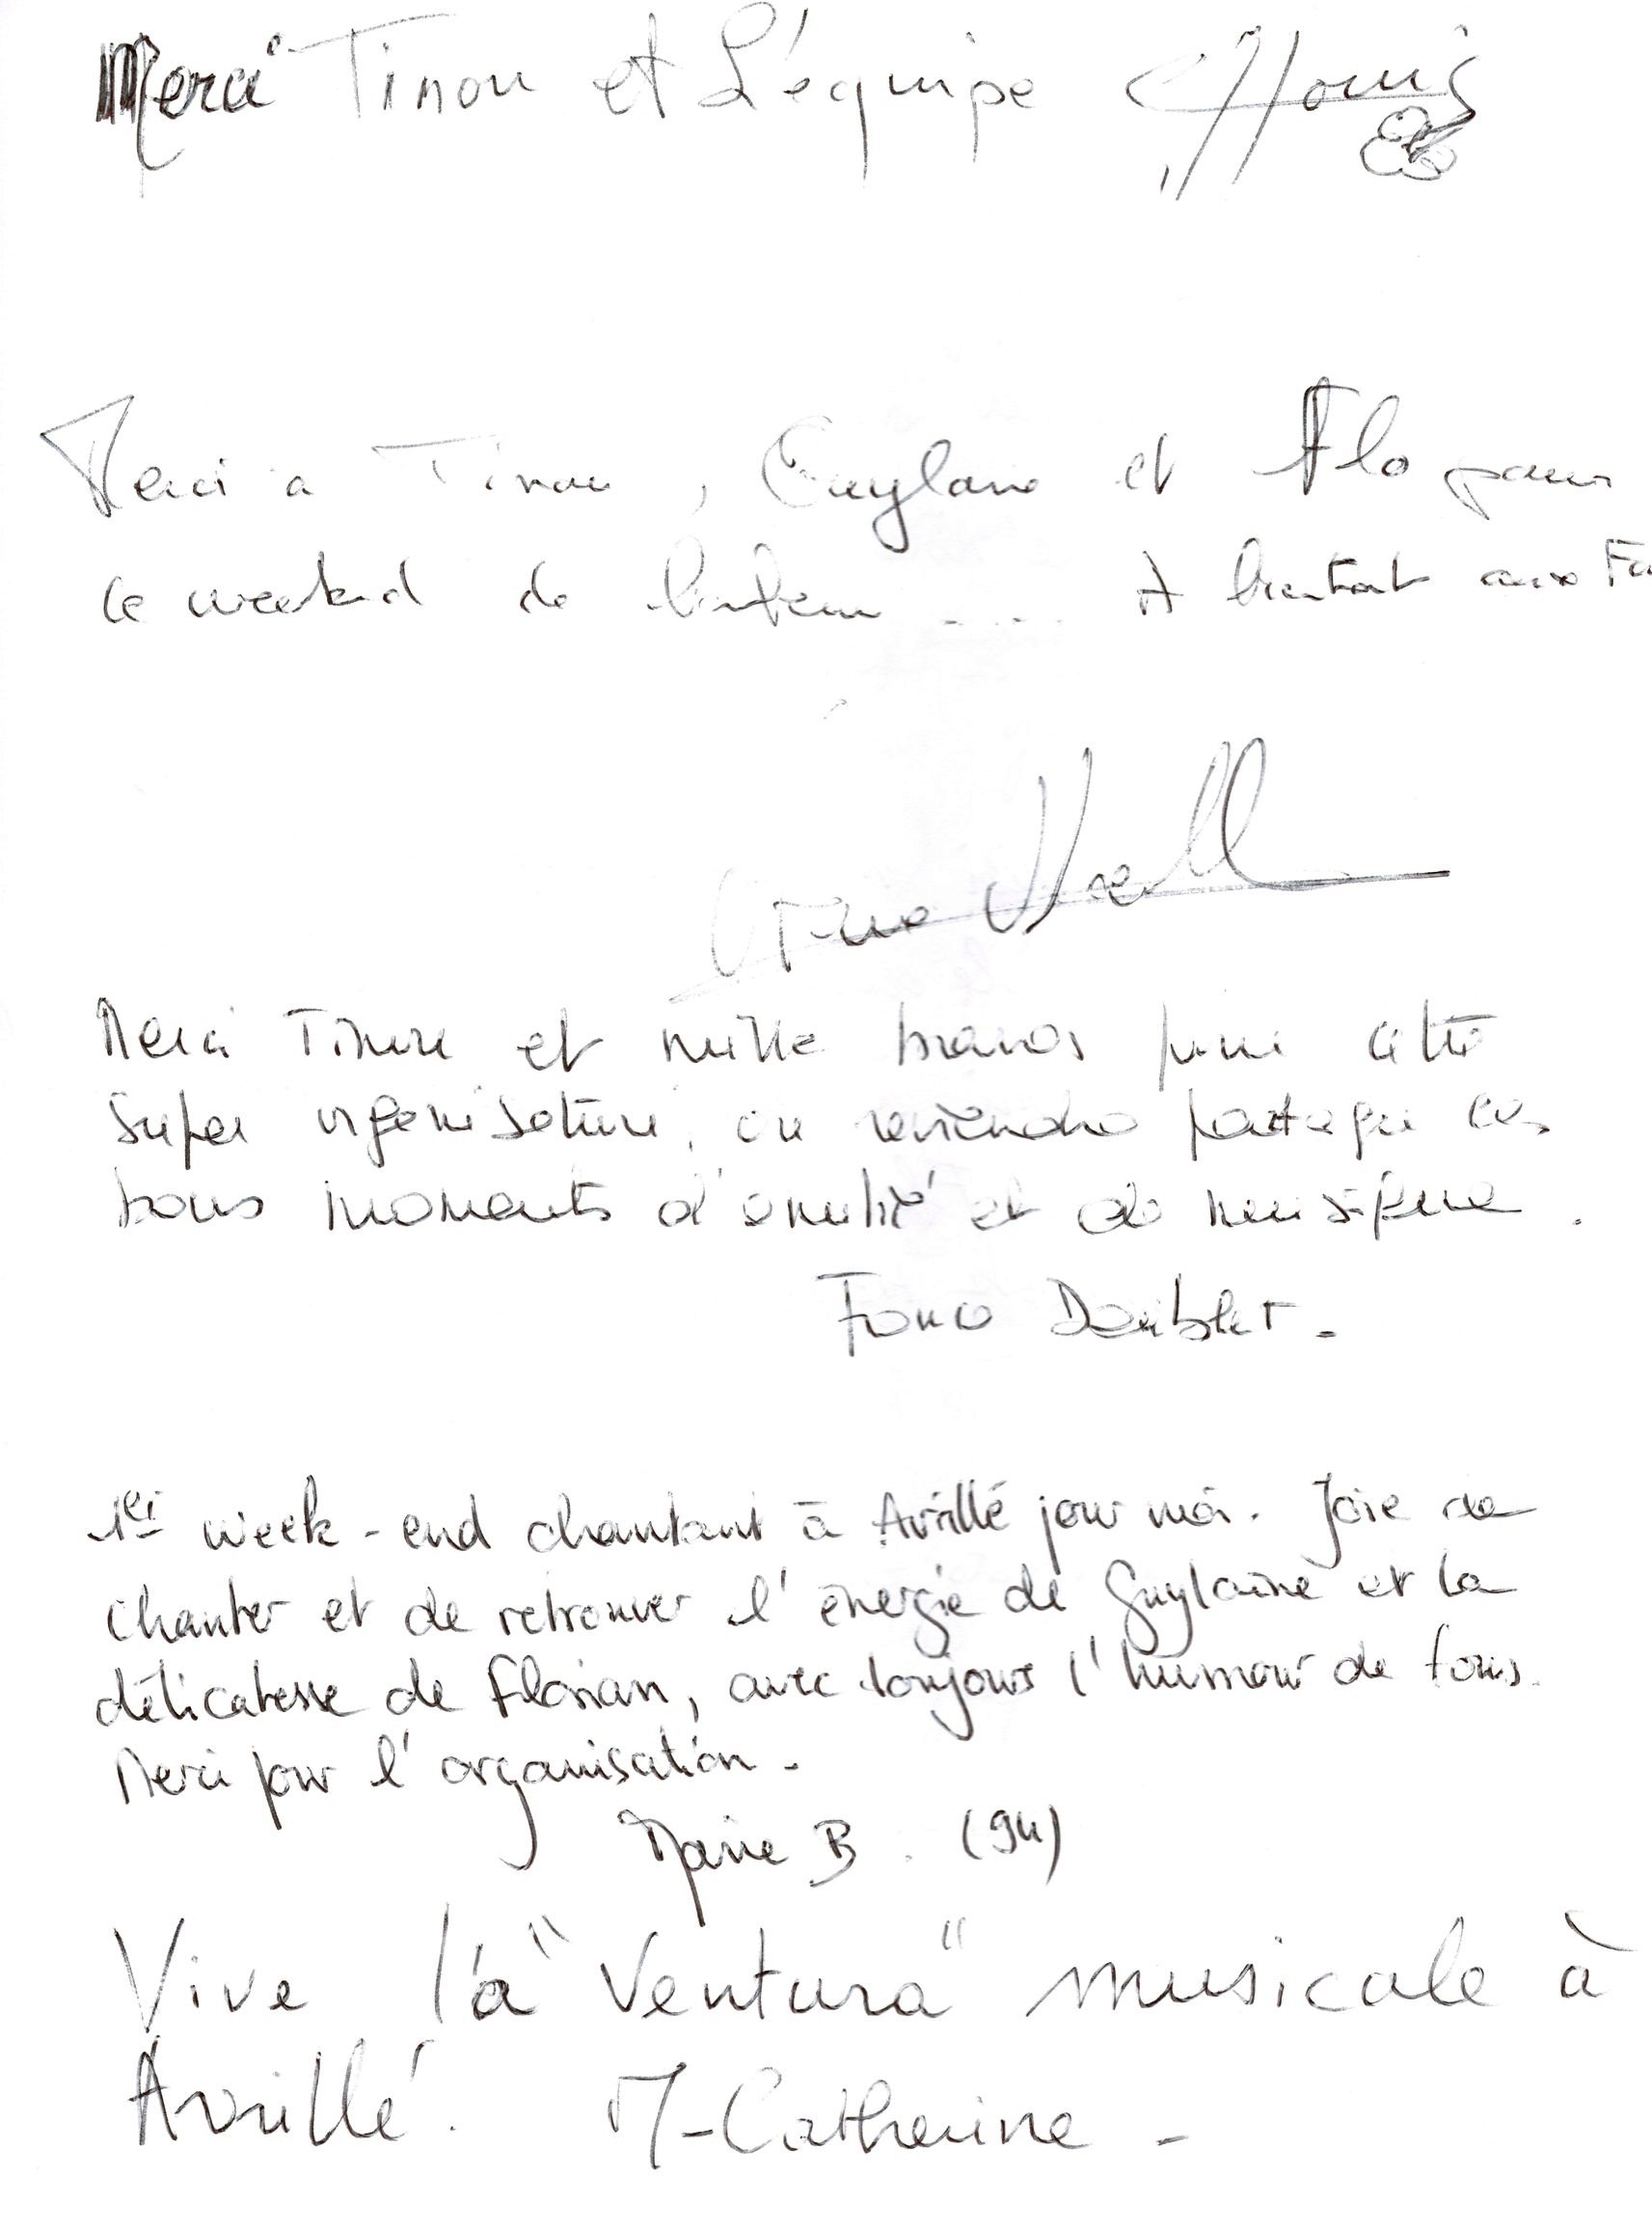 Merci Tinou et L'équipe
Merci a Tinou, Guylaine et Flo pour
ce weekend de A bientot aux
Merci Tinou et mille bravos pour cette
super organisation, on reviendra partager ces
bons moments d'amitié et de musique.
1er week-end chantant à Avrillé pour moi. Joie de
chanter et de retrouver l'énergie de Guylaine et la
délicatesse de Florian, avec toujours l'humour de tous.
Merci pour l'organisation.
Marie B. (94)
Vive l'a "Ventura" musicale à
Avrillé. M-Catherine -